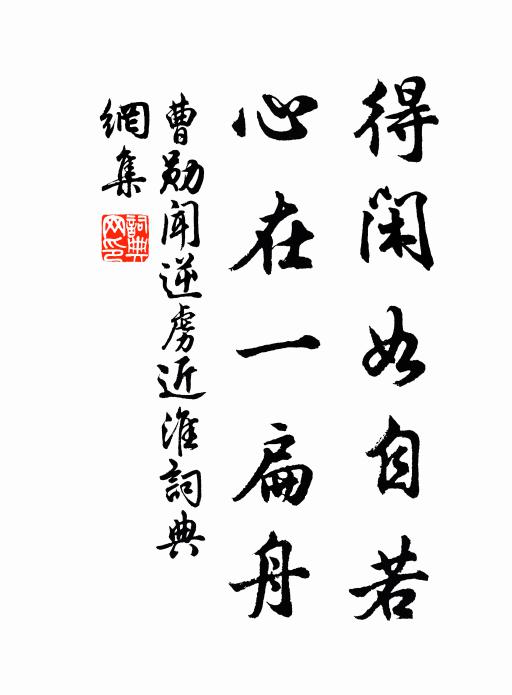 得闲如自若
心在一扁舟
曹勋闻逆虏近淮詞典
網集
詞典网印